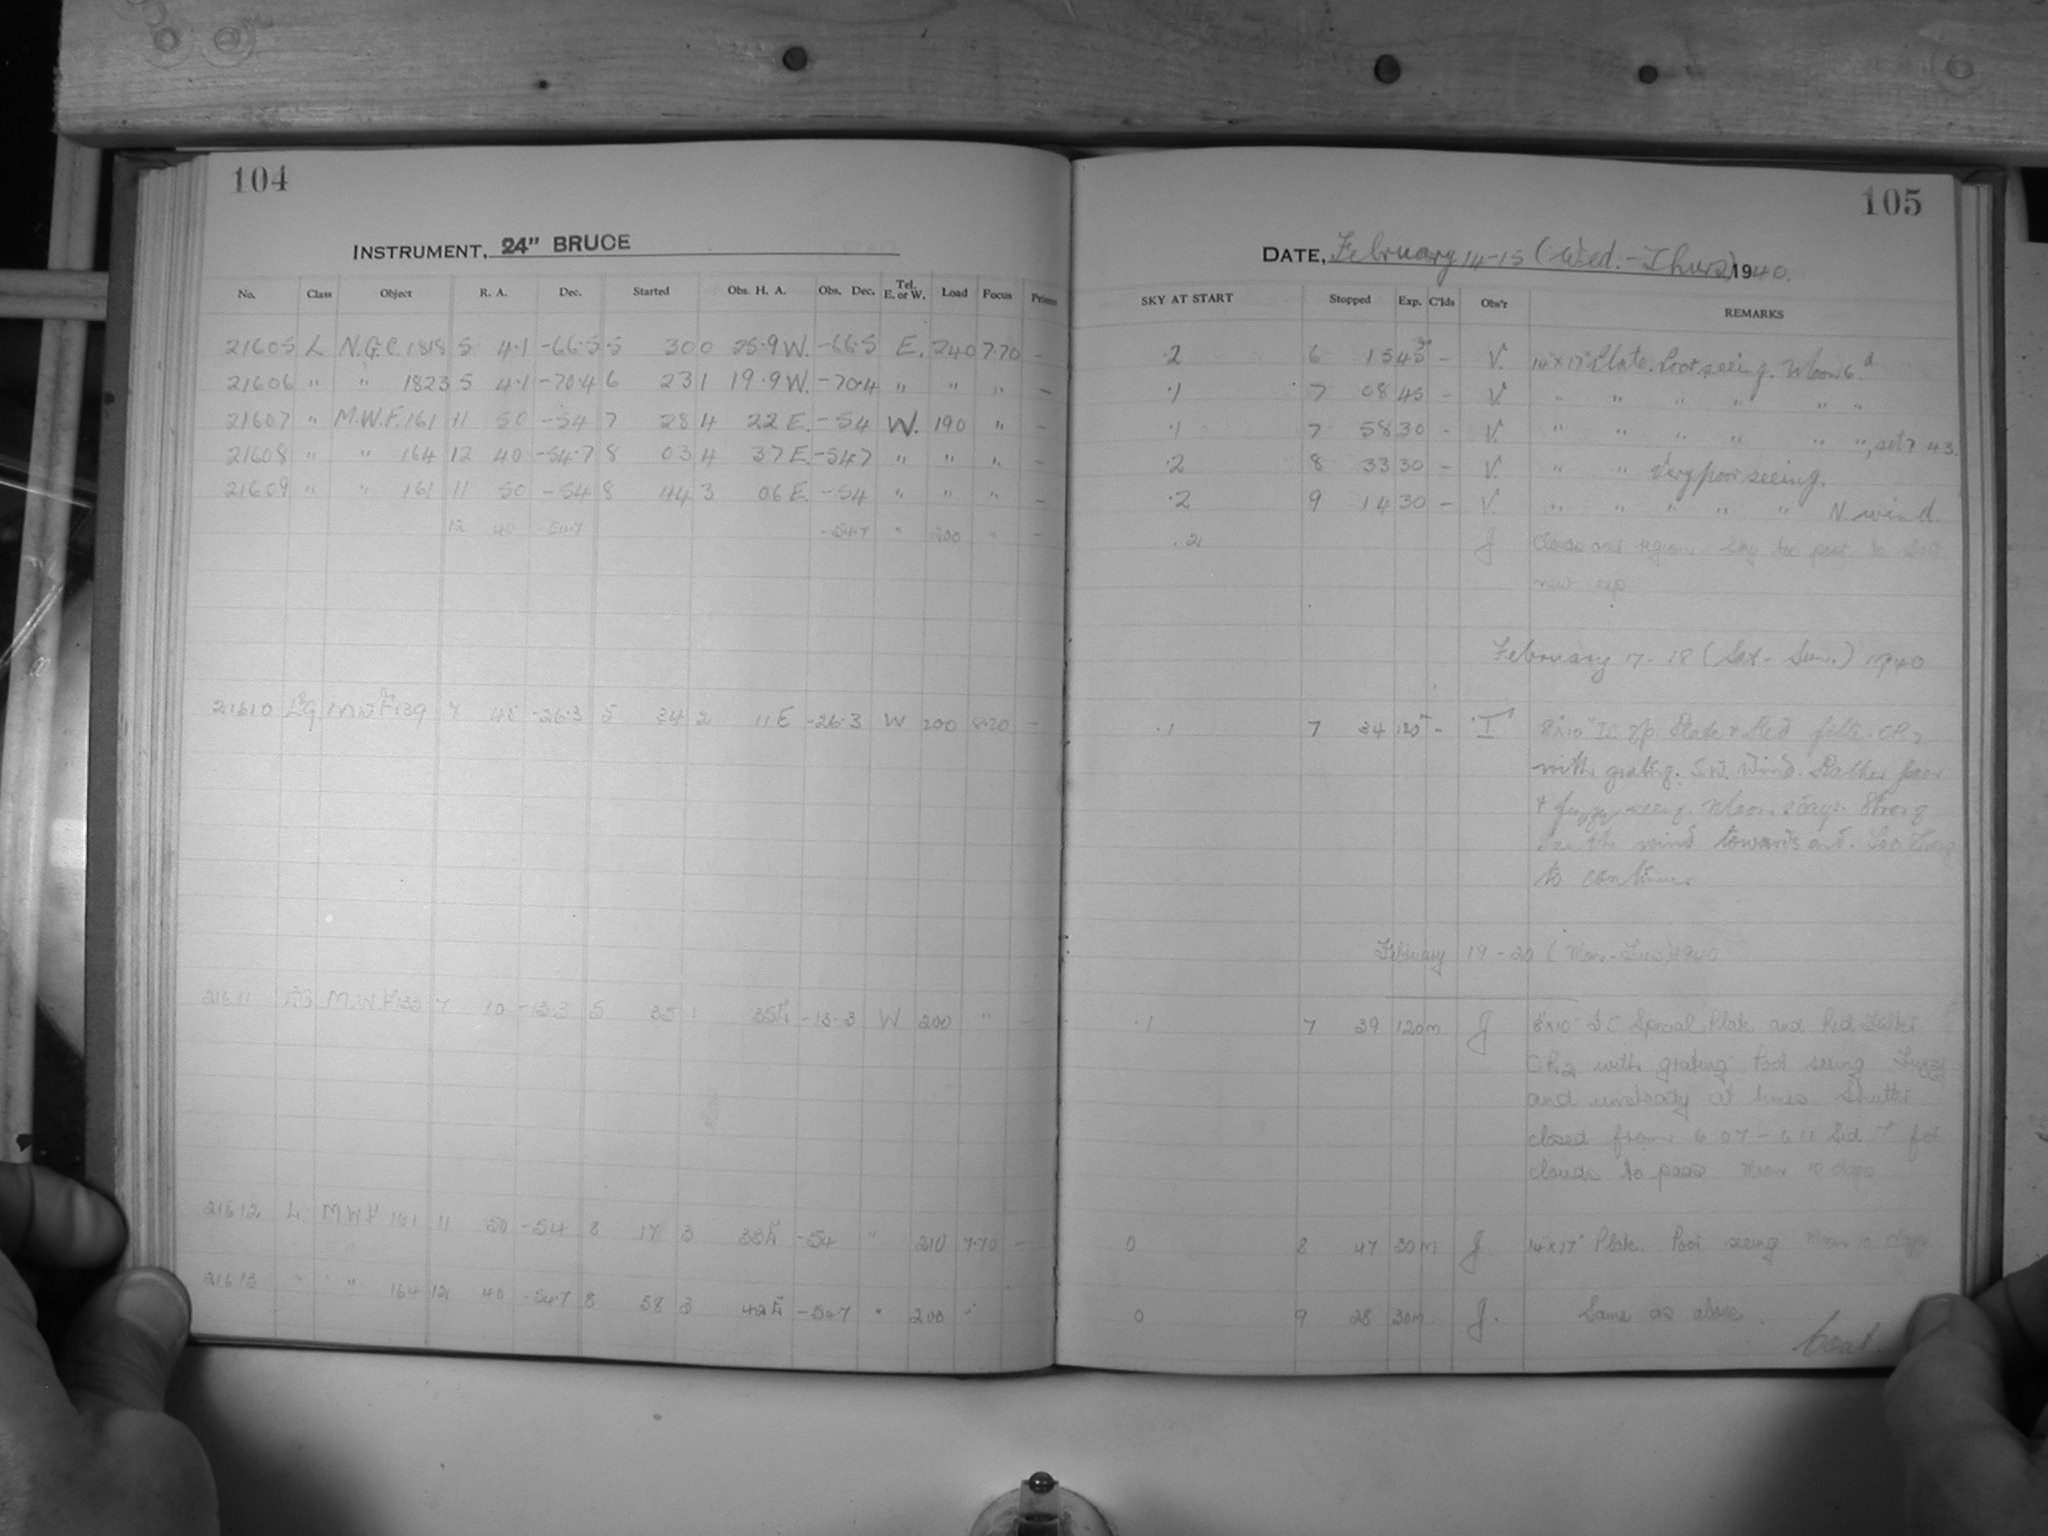 104
INSTRUMENT, 24" BRUCE
No. Class Object R. A. Dec. Started Obs. H. A. Obs. Dec. Tel. E. or W. Load Focus Prisms
21605 L N.G.C. 1818 5 4.1 -66.5 5 30 0 25.9 W. -66.5 E. 240 7.70 -
21606 " " 1823 5 4.1 -70.4 6 23 1 19.9 W. -70.4 " " " -
21607 " M.W.F. 161 11 50 -54 7 28 4 22 E. -54 W. 190 " -
21608 " " 164 12 40 -54.7 8 03 4 37 E. -547 " " " -
21609 " " 161 11 50 -54 8 44 3 06 E. -54 " " " -
12 40 -54.7 -54.7 " 200 " -
21610 M W F 139 7 45 -26.3 5 34 2 11 E -26.3 W 200 8.20 -
21611 M.W.F 133 7 10 -13.3 5 35 1 35 E -13.3 W 200 " -
21612 L M.W.F 161 11 50 -54 8 17 3 33 E -54 " 210 7.70 -
21613 " " 164 12 40 -54.7 8 58 3 42 E -54.7 " 200 "
105
DATE, February 14-15 (Wed.-Thurs) 1940.
SKY AT START Stopped Exp. C'lds Obs'r REMARKS
.2 6 15 45 - V. 14"x17" Plate. Poor seeing. Moon 6d
.1 7 08 45 - V. " " " " " "
.1 7 58 30 - V. " " " " " ", set 7 43.
.2 8 33 30 - V. " " Very poor seeing.
.2 9 14 30 - V. " " " " " N. wind.
.2 J Clouds over region. Sky too poor to start
new exp
February 17-18 (Sat-Sun.) 1940
.1 7 34 120 - T 8"x10" I.C. Sp Plate + Red filter. CR2
with grating. S.W. wind. Rather poor
+ fuzzy seeing. Moon days. Strong
wind towards end. Too strong
to continue.
February 19-20 (Mon-Tues) 1940
.1 7 39 120m J 8"x10" I C Special Plate and Red Filter
CR2 with grating Poor seeing Fuzzy
and unsteady at times Shutter
closed from 6 07 - 6 11 Sid T for
clouds to pass Moon 10 days
0 8 47 30m J. 14"x17" Plate. Poor seeing Moon 10 days
0 9 28 30m J. Same as above.
Cont.